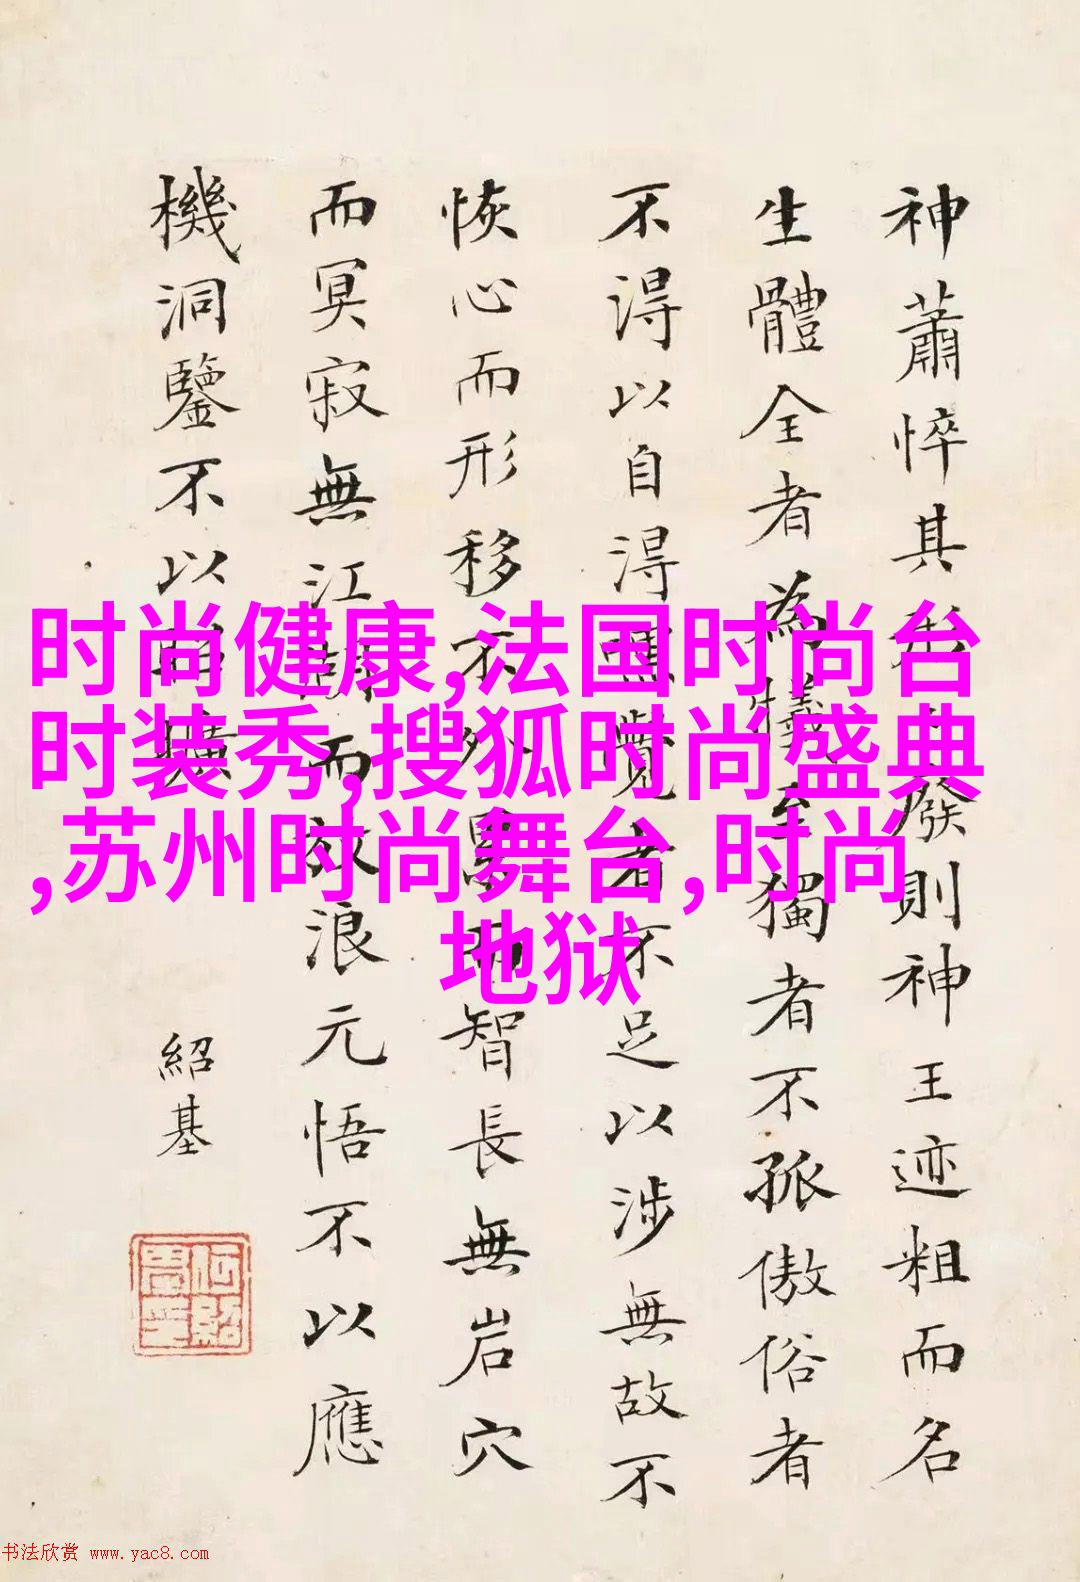 神蕭悴其
發則神王迹粗而名
生體全者為犧至獨者不孤傲俗者
不得以自得
覺者不足以涉無故不
恢心而形移不外
智長無岩穴
而冥寂無江
而放浪元悟不以應
機洞鑒不以
紹基
时尚健康,法国时尚台
时装秀,搜狐时尚盛典
,苏州时尚舞台,时尚
地狱
书法欣赏 www.yac8.com